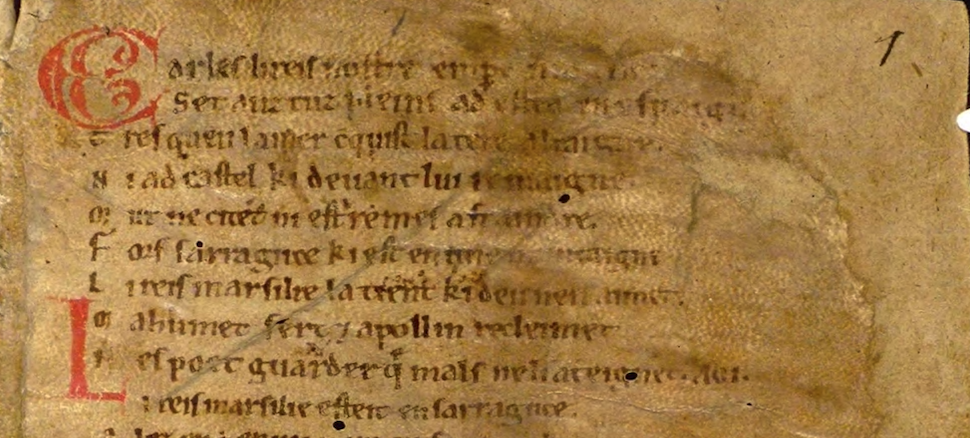 1
Carles li reis nostre emp
Set anz tuz pleins ad estet en espaigne
Tresqu en la mer cquist la tere altaigne.
N i ad castel ki devant lui remaigne
Mur ne citet ni est remes a fraindre.
Fors sarraguce ki est en une muntaigne
Li reis marsilie la tient ki deu nen aimet.
Mahumet sert 7 apollin recleimet
Nes poet guarder q̄ mals ne li ateignet. aoi.
Li reis marsilie esteit en sarraguce.